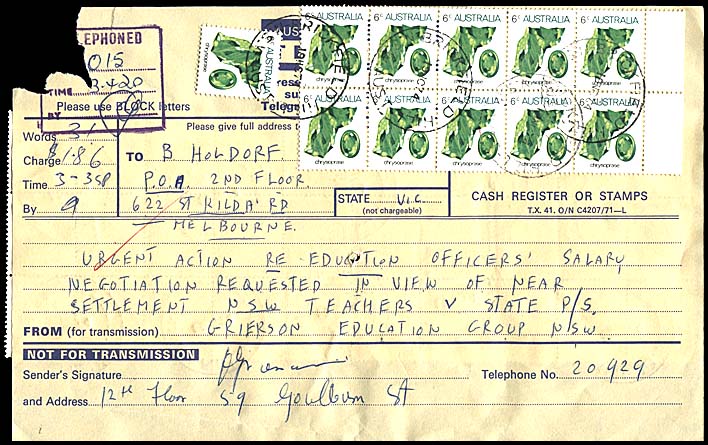 TELEPHONED
015
TIME
BY
Please use BLOCK letters
Please give full address
Words 31
Charge $1.86
Time 3-35p
By 9
TO B HOLDORF.
P.O.A 2ND FLOOR.
622 ST KILDA RD
MELBOURNE.
STATE Vic
(not chargeable)
CASH REGISTER OR STAMPS
T.X. 41. O/N C4207/71—L
6c AUSTRALIA 6c AUSTRALIA 6c AUSTRALIA 6c AUSTRALIA 6c AUSTRALIA
chrysoprase
chrysoprase chrysoprase chrysoprase chrysoprase chrysoprase
URGENT ACTION RE EDUCATION OFFICERS' SALARY
NEGOTIATION REQUESTED IN VIEW OF NEAR
SETTLEMENT NSW TEACHERS V STATE P/S.
FROM (for transmission) GRIERSON EDUCATION GROUP NSW
NOT FOR TRANSMISSION
Sender's Signature
Telephone No. 20929
and Address 12th Floor 59 Goulburn St